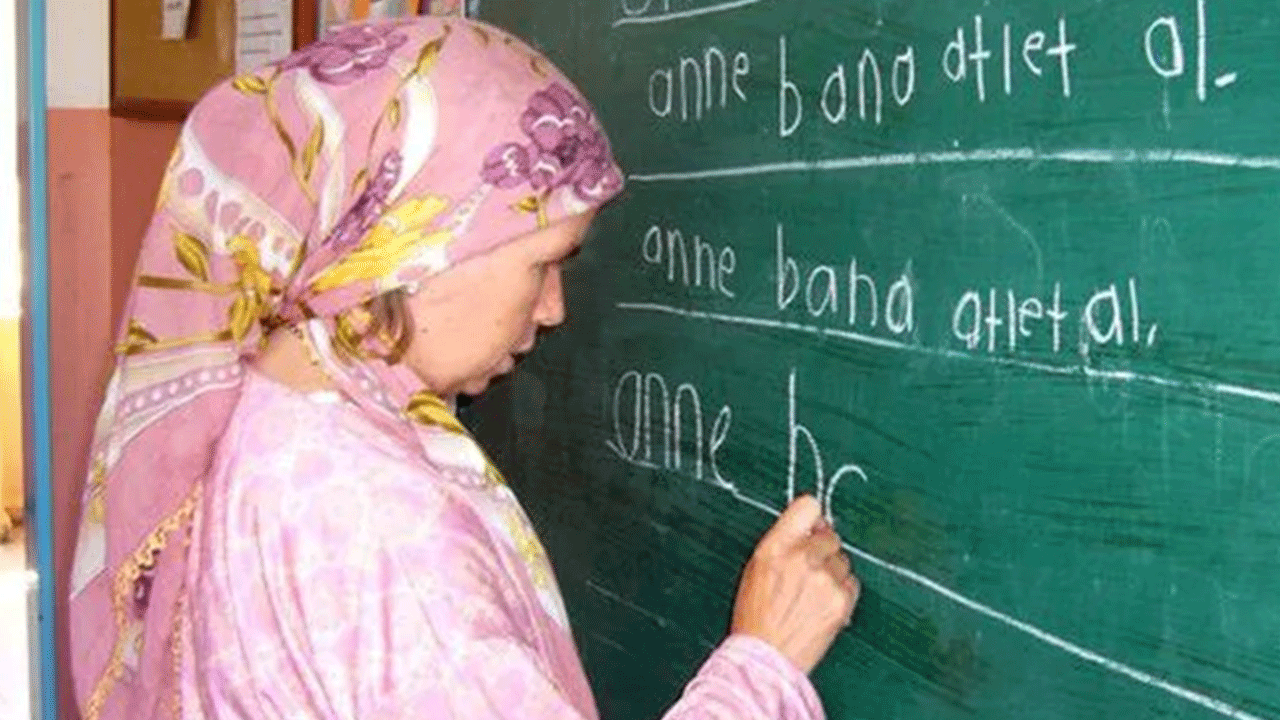 anne bana atlet al.
anne bana atlet al.
anne b